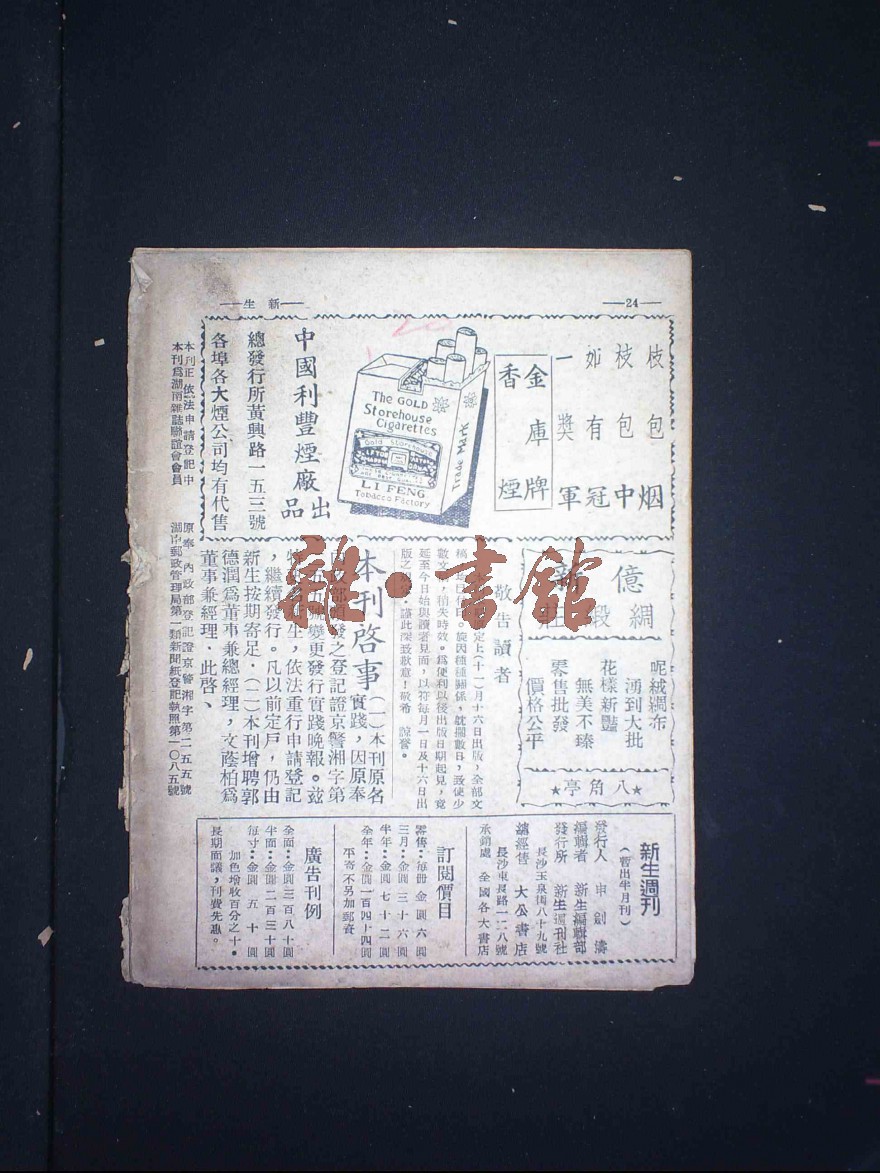 —24—
—新生—
枝枝如一
包包有獎
烟中冠軍
金庫牌
香煙
The GOLD
Storehouse
Cigarettes
Gold Storehouse
LI FENG
Tobacco Factory
Trade Mark
中國利豐煙廠出品
總發行所黃興路一五三號
各埠各大煙公司均有代售
本刊正依法申請登記中
本刊爲湖南雜誌聯誼會會員
億
綢緞莊
呢絨綢布
湧到大批
花樣新豔
無美不臻
零售批發
價格公平
★八角亭★
敬告讀者
定上(十一)月十六日出版,全部文
稿
印。旋因種種關係,耽擱數日,致使少
數文
,稍失時效。爲便利以後出版日期起見,竟
延至今日始與讀者見面,以符每月一日及十六日出
版之
謹此深致歉意!敬希 諒詧。
本刊啓事
(一)本刊原名
實踐,因原奉
內政部頒發之登記證京警湘字第
五五號變更發行實踐晚報。茲
生,依法重行申請登記
,繼續發行。凡以前定戶,仍由
新生按期寄足.(二)本刊增聘郭
德潤爲董事兼總經理,文蔭柏爲
董事兼經理.此啓、
原奉 內政部登記證京警湘字第二五五號
湖南郵政管理局第一類新聞紙登記執照第一〇八五號
新生週刊
(暫出半月刊)
發行人 申劍濤
編輯者 新生編輯部
發行所 新生週刊社
長沙玉泉街八十九號
總經售 大公書店
長沙東長路一二八號
承銷處 全國各大書店
訂閱價目
零售:每冊金圓六圓
三月:金圓三十六圓
半年:金圓七十二圓
全年:金圓一百四十四圓
平寄不另加郵資
廣告刊例
全面:金圓三百八十圓
半面:金圓二百三十圓
每寸:金圓五十圓
加色增收百分之十.
長期面議,刊費先惠。
雜·書館